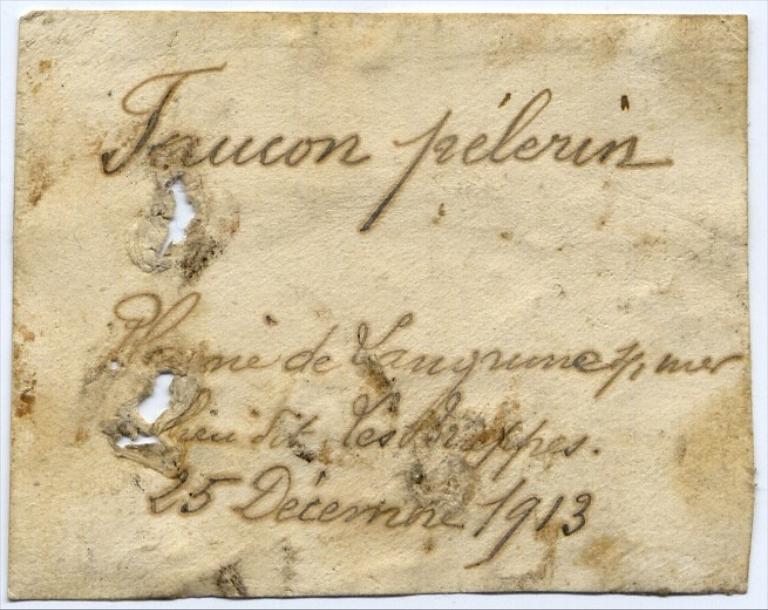 Faucon pélerin
Plaine de Langrune s/ mer
lieu dit, les
25 Décembre 1913